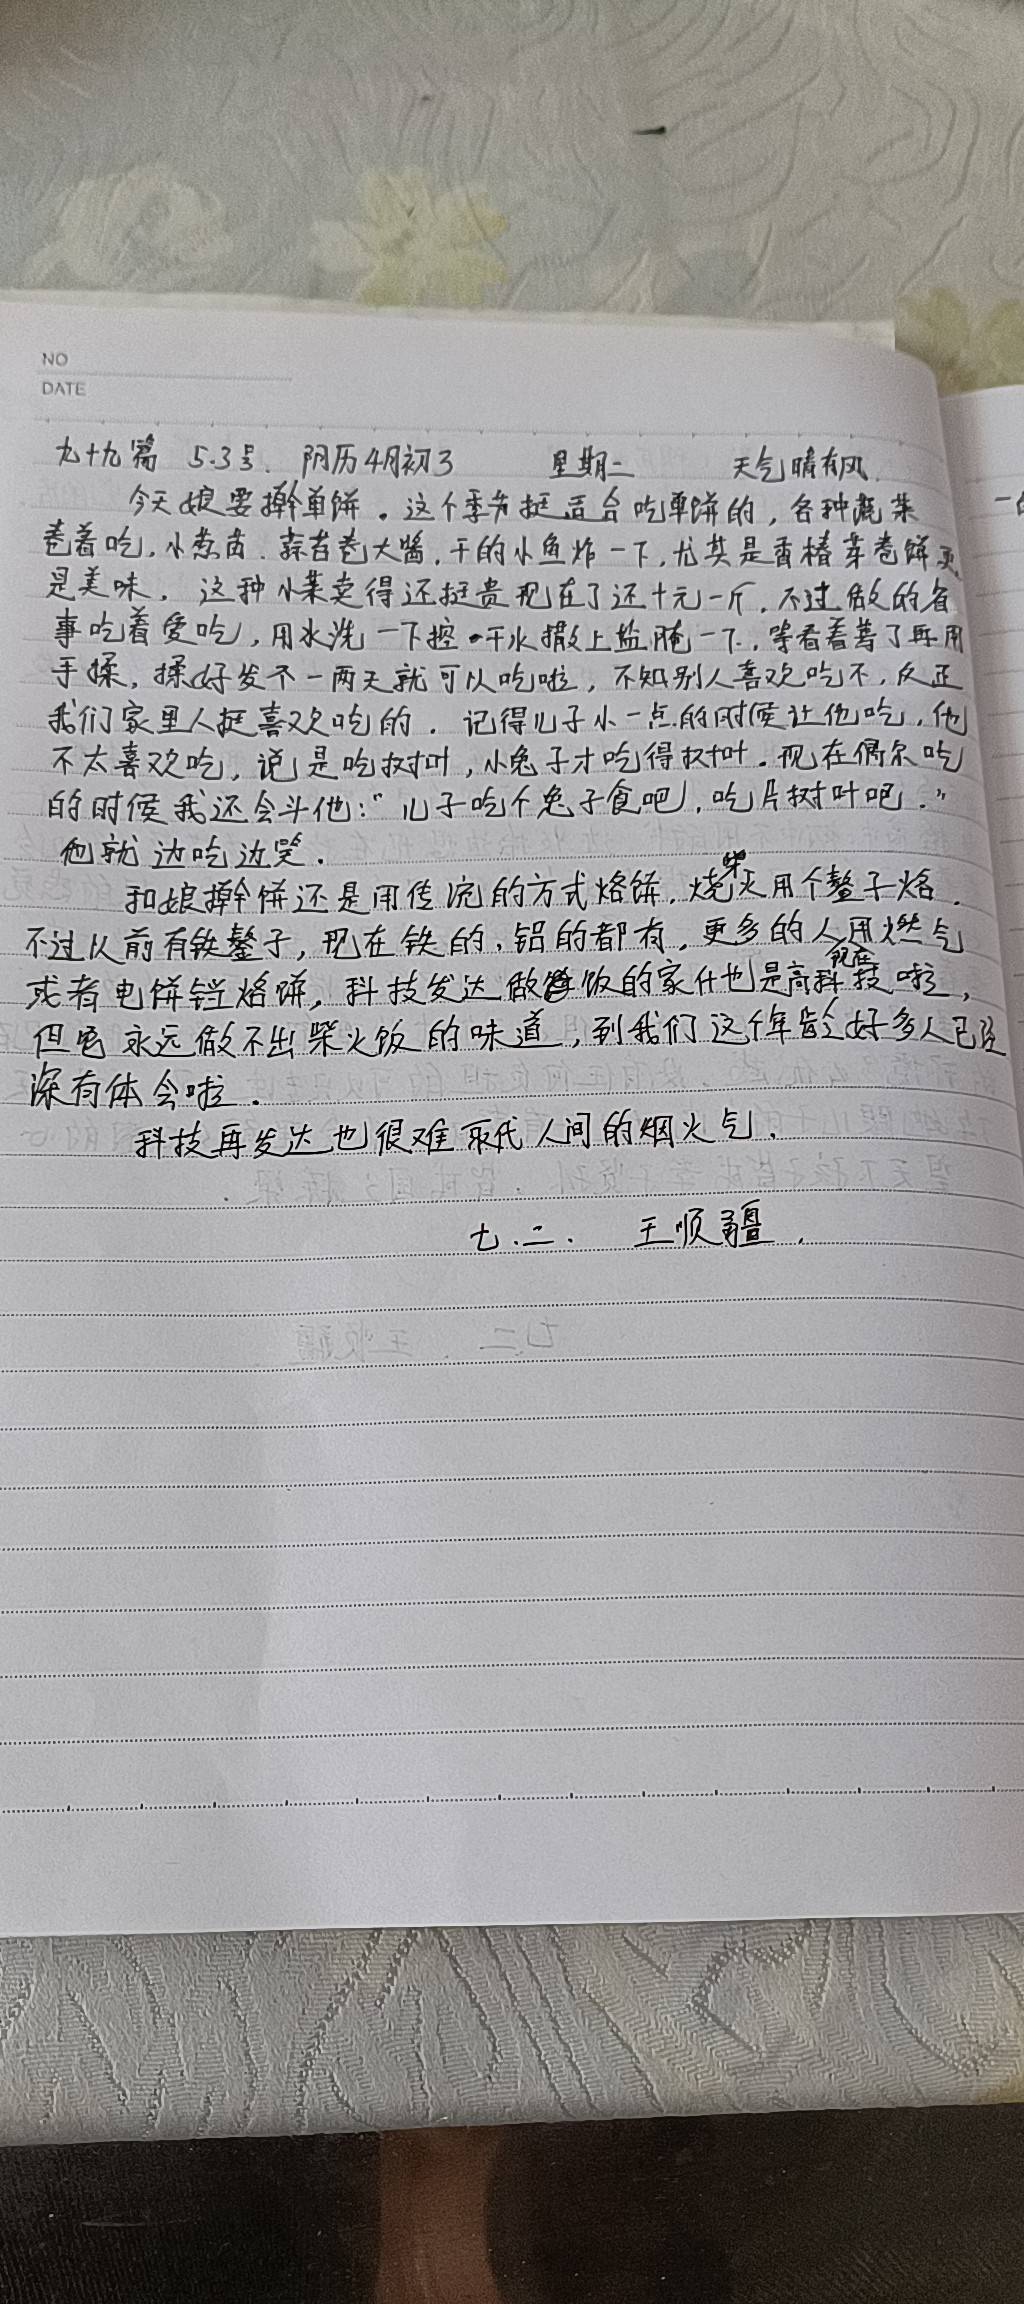 NO
DATE
九十九篇 5.3号. 阴历4月初3 星期二 天气晴有风.
今天娘要擀单饼。这个季节挺适合吃单饼的，各种蔬菜
卷着吃，小葱苗、蒜苔卷大酱，干的小鱼炸一下，尤其是香椿芽卷饼更
是美味，这种小菜卖得还挺贵现在了还十元一斤，不过做的省
事吃着爱吃，用水洗一下控干水撒上盐腌一下，等看着蔫了再用
手揉，揉好发个一两天就可以吃啦，不知别人喜欢吃不，反正
我们家里人挺喜欢吃的．记得儿子小一点的时候让他吃，他
不太喜欢吃，说是吃树叶，小兔子才吃得树叶．现在偶尔吃
的时候我还会斗他：“儿子吃个兔子食吧，吃片树叶吧．”
他就边吃边笑．
和娘擀饼还是用传统的方式烙饼，烧柴火用个鏊子烙．
不过以前有铁鏊子，现在铁的、铝的都有，更多的人用燃气
或者电饼铛烙饼，科技发达做饭的家什也是高科技现在啦，
但它永远做不出柴火饭的味道，到我们这个年龄好多人已经
深有体会啦．
科技再发达也很难取代人间的烟火气．
七．二． 王顺疆．